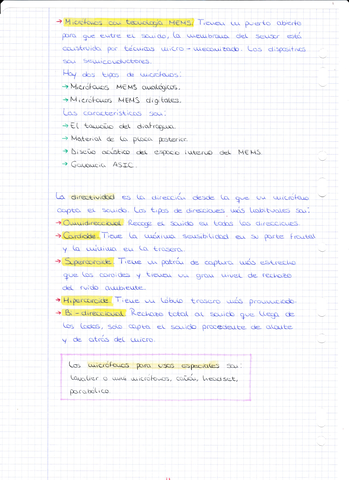 → Micrófonos con tecnología MEMS: Tienen un puerto abierto
para que entre el sonido, la membrana del sensor está
construida por técnicas micro-mecanizado. Los dispositivos
son semiconductores.
Hay dos tipos de micrófonos:
→ Micrófonos MEMS analógicos.
→ Micrófonos MEMS digitales.
Las características son:
→ El tamaño del diafragma.
→ Material de la placa posterior.
→ Diseño acústico del espacio interno del MEMS.
→ Ganancia ASIC.
La directividad es la dirección desde la que un micrófono
capta el sonido. Los tipos de direcciones más habituales son:
→ Omnidireccional: Recoge el sonido en todas las direcciones.
→ Cardioide: Tiene la máxima sensibilidad en su parte frontal
y la mínima en la trasera.
→ Supercardioide: Tiene un patrón de captura más estrecho
que los cardioides y tienen un gran nivel de rechazo
del ruido ambiente.
→ Hipercardioide: Tiene un lóbulo trasero más pronunciado.
→ Bi-direccional: Rechazo total al sonido que llega de
los lados, solo capta el sonido procedente de delante
y de atrás del micro.
Los micrófonos para usos especiales son:
lavalier o mini micrófonos, cañón, headset,
parabólico